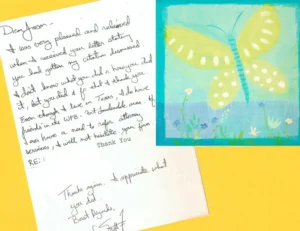 Dear Jason -
I was very pleased and relieved
when I received your letter stating
you had gotten my citation dismissed
I don't know what you did or how you did
it, but you did & for that I thank you.
Even though I live in Texas, I do have
friends in the WPB. And
I nor have a need to refer attorney
services, I will not hesitate you firm
THANK YOU
RE:
Thanks again. I appreciate what
you did.
Best Regards,